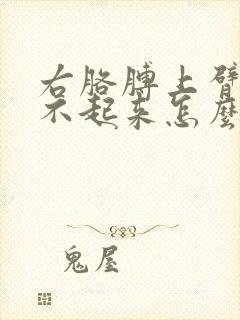 右胳膊上臂
不起来怎麽
鬼屋